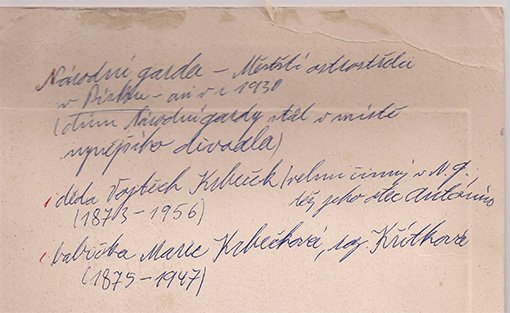 Národní garda – Městští ostrostřelci
v Písku – asi v r. 1930
(dům Národní gardy stál v místě
nynějšího divadla)
děda Vojtěch Krbeček (velmi činný v N. g.
též jeho otec Antonín
(1873–1956)
babička Marie Krbečková, roz. Křítková
(1875–1947)